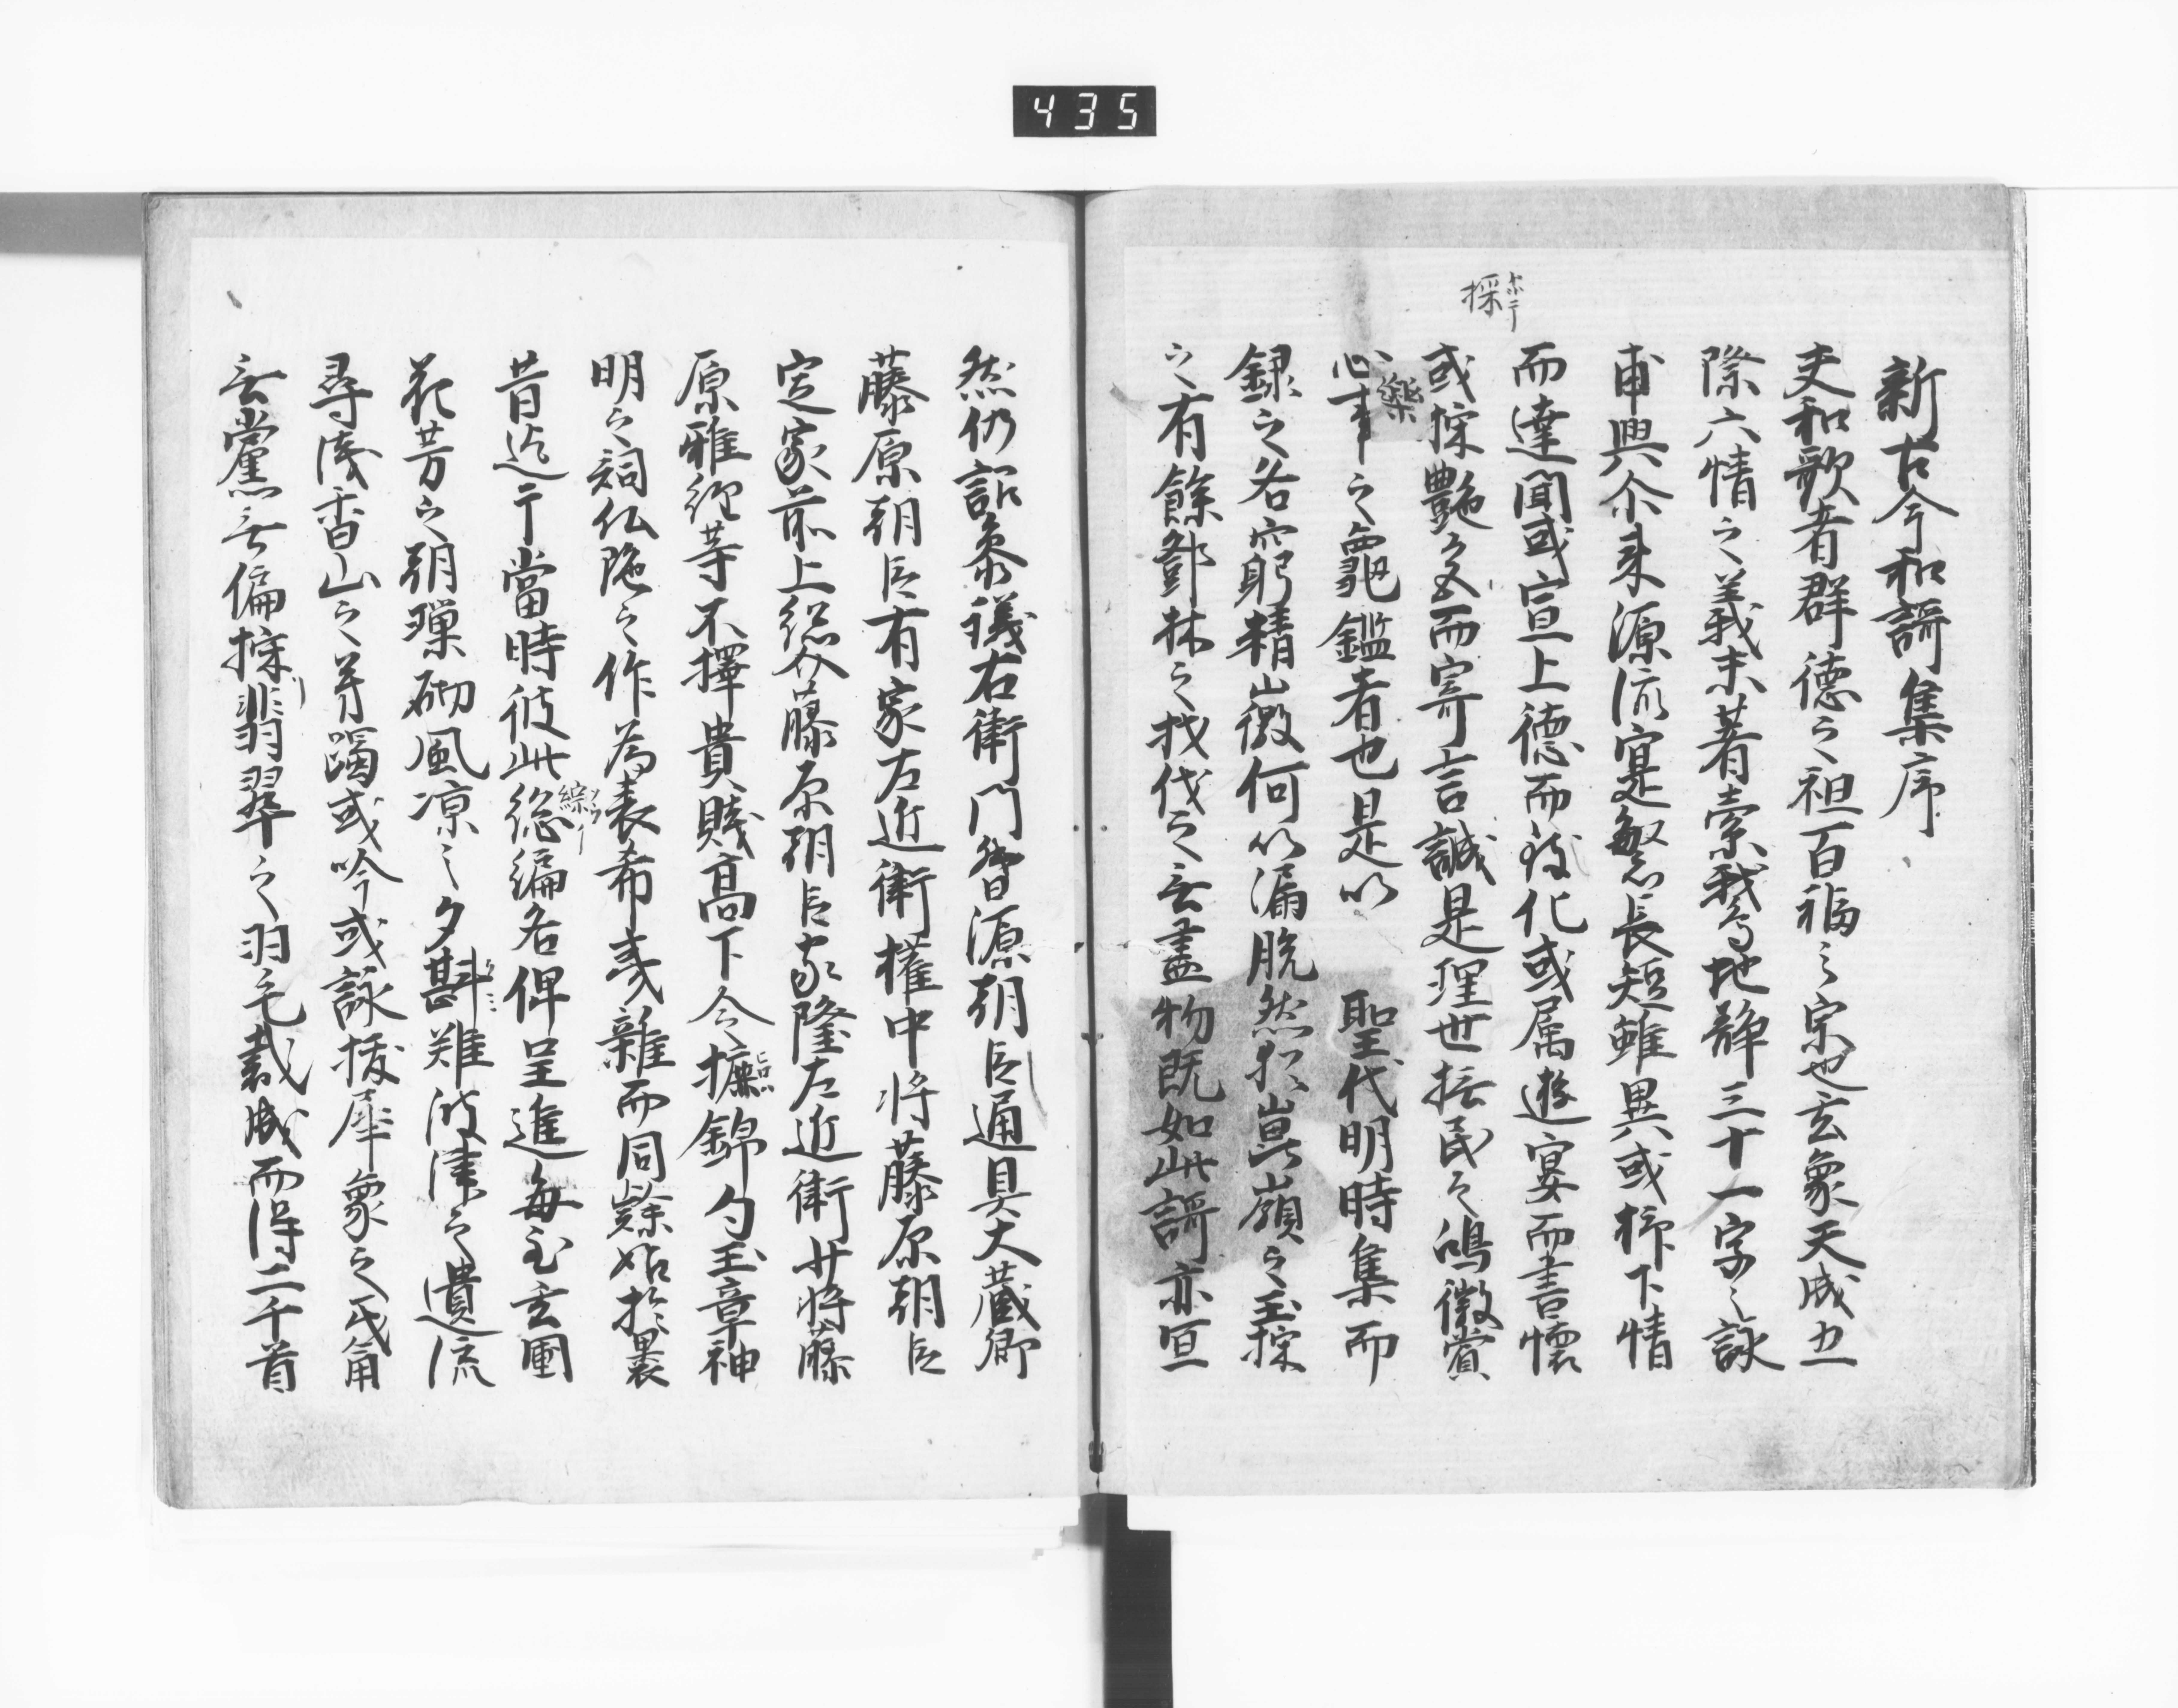 435
新古今和謌集序
夫和歌者群德之祖百福之宗也玄象天成五
際六情之義未著素鵞地静三十一字之詠
甫興尒来源流寔繁長短雖異或抒下情
而達聞或宣上德而致化或属遊宴而書懐
採
或採艶色而寄言誠是理世撫民之鴻徽賞
樂
心事之龜鑑者也是以 聖代明時集而
録之各窮精微何以漏脱然猶崑嶺之玉採
之有餘鄧林之材伐之无盡物既如此謌亦宜
然仍詔參議右衛門督源朝臣通具大蔵卿
藤原朝臣有家左近衛權中将藤原朝臣
定家前上総介藤原朝臣家隆左近衛少将藤
原雅経等不擇貴賤高下令摭錦句玉章神
明之詞仏陁之作為表希夷雜而同隷始於曩
昔迄于當時彼此総編各俾呈進毎至玄圃
綜
花芳之朝璅砌風凉之夕斟難波津之遺流
尋浅香山之芳躅或吟或詠抜犀象之牙角
无黨无偏採翡翠之羽毛裁成而得二千首